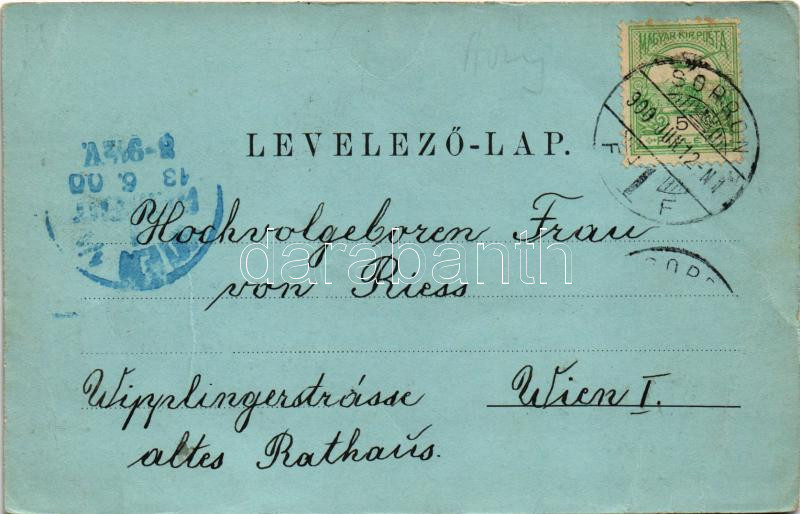 MAGYAR KIR. POSTA
SOPRON
900 JUN 12
F F
5
LEVELEZŐ-LAP.
8-9½V
13.6.00
WIEN
Hochvolgeboren Frau
darabanth
SOPR
von Riess
Wipplingerstrásse Wien I.
altes Rathaus.